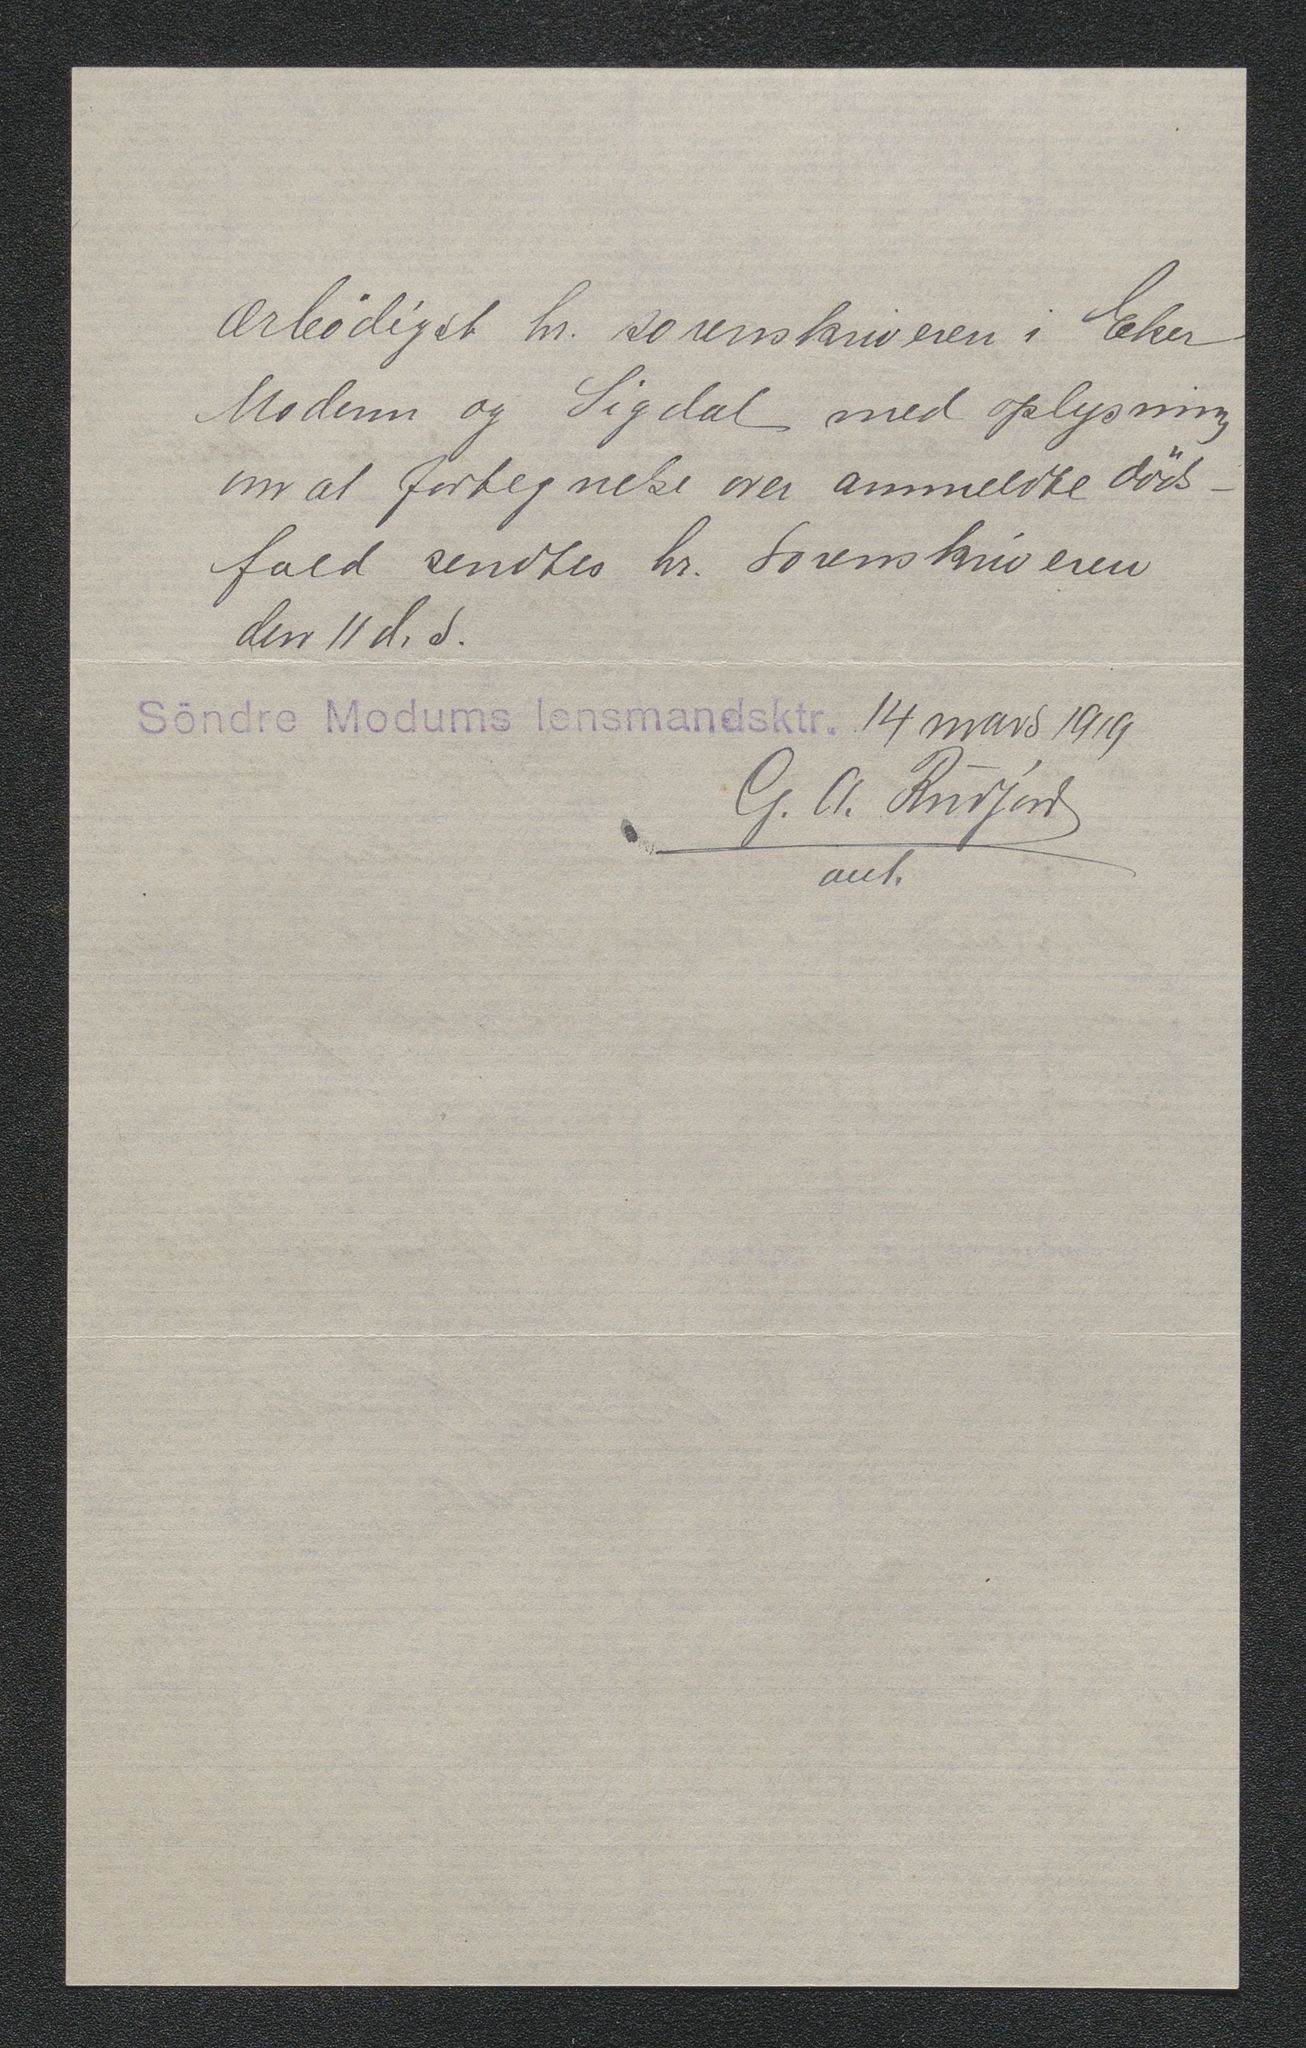 Ærbödigst hr. sorenskriveren i Eker
Modum og Sigdal med oplysning
om at fortegnelse over anmeldte döds-
fald sendtes hr. Sorenskriveren
den 11 d. s.
Söndre Modums lensmandsktr. 14 mars 1919
G. A. Rudfjord
aut.